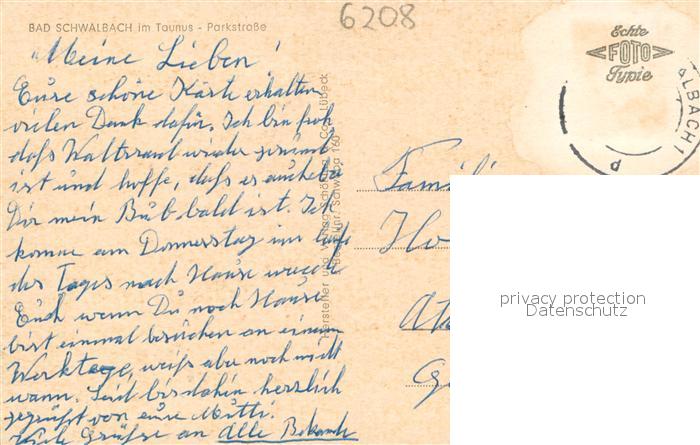 6208
BAD SCHWALBACH im Taunus - Parkstraße
Echte
FOTO
Typie
ALBACH 1
Meine Lieben!
Eure schöne Karte erhalten,
vielen Dank dafür. Ich bin froh
daß Waltraud wieder gesund
ist und hoffe, daß es auch bei
Dir mein Bub bald ist. Ich
komme am Donnerstag im Laufe
des Tages nach Hause werde
Euch wenn Du noch Hause
bist einmal besuchen an einem
Werktage, weiß aber noch nicht
wann. Seid bis dahin herzlich
gegrüßt von eure Mutti.
Viele Grüße an Alle Bekannte
Famili
Ho
privacy protection
Datenschutz